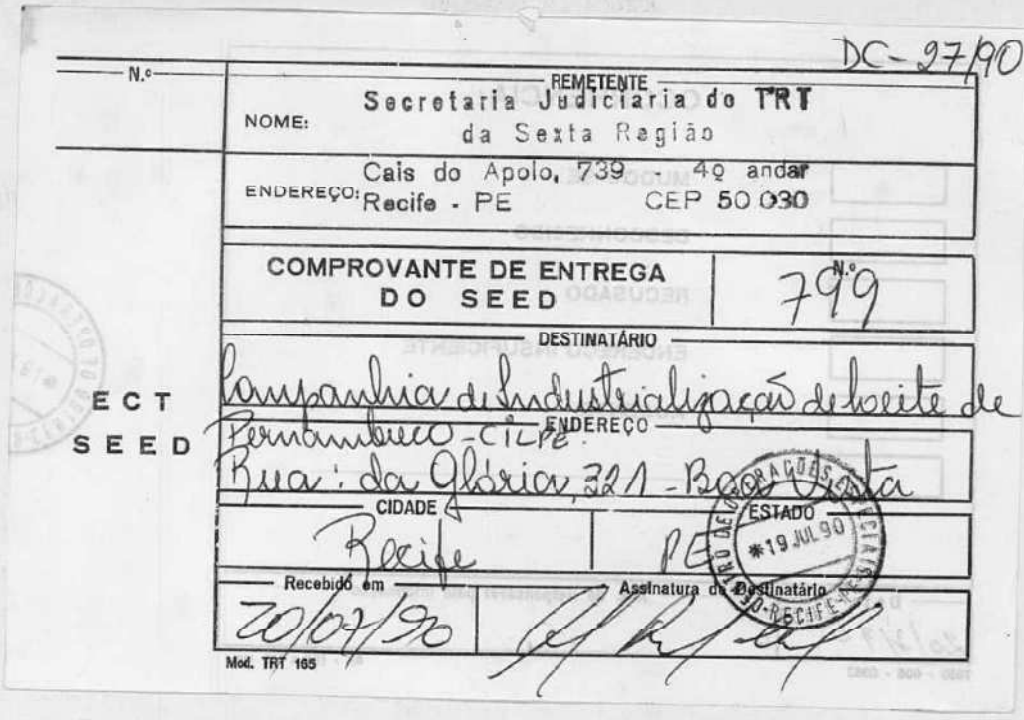 DC-27/90
N.º
REMETENTE
NOME: Secretaria Judiciaria do TRT
da Sexta Região
ENDEREÇO: Cais do Apolo, 739 - 4º andar
Recife - PE CEP 50 030
COMPROVANTE DE ENTREGA
DO SEED
N.º
799
ECT
SEED
DESTINATÁRIO
Companhia de Industrialização de Leite de
ENDEREÇO
Pernambuco - CILPE.
Rua: da Glória, 321 - Boa Vista
CIDADE
Recife
ESTADO
PE
*19 JUL 90
Recebido em
20/07/90
Assinatura do Destinatário
Mod. TRT 165